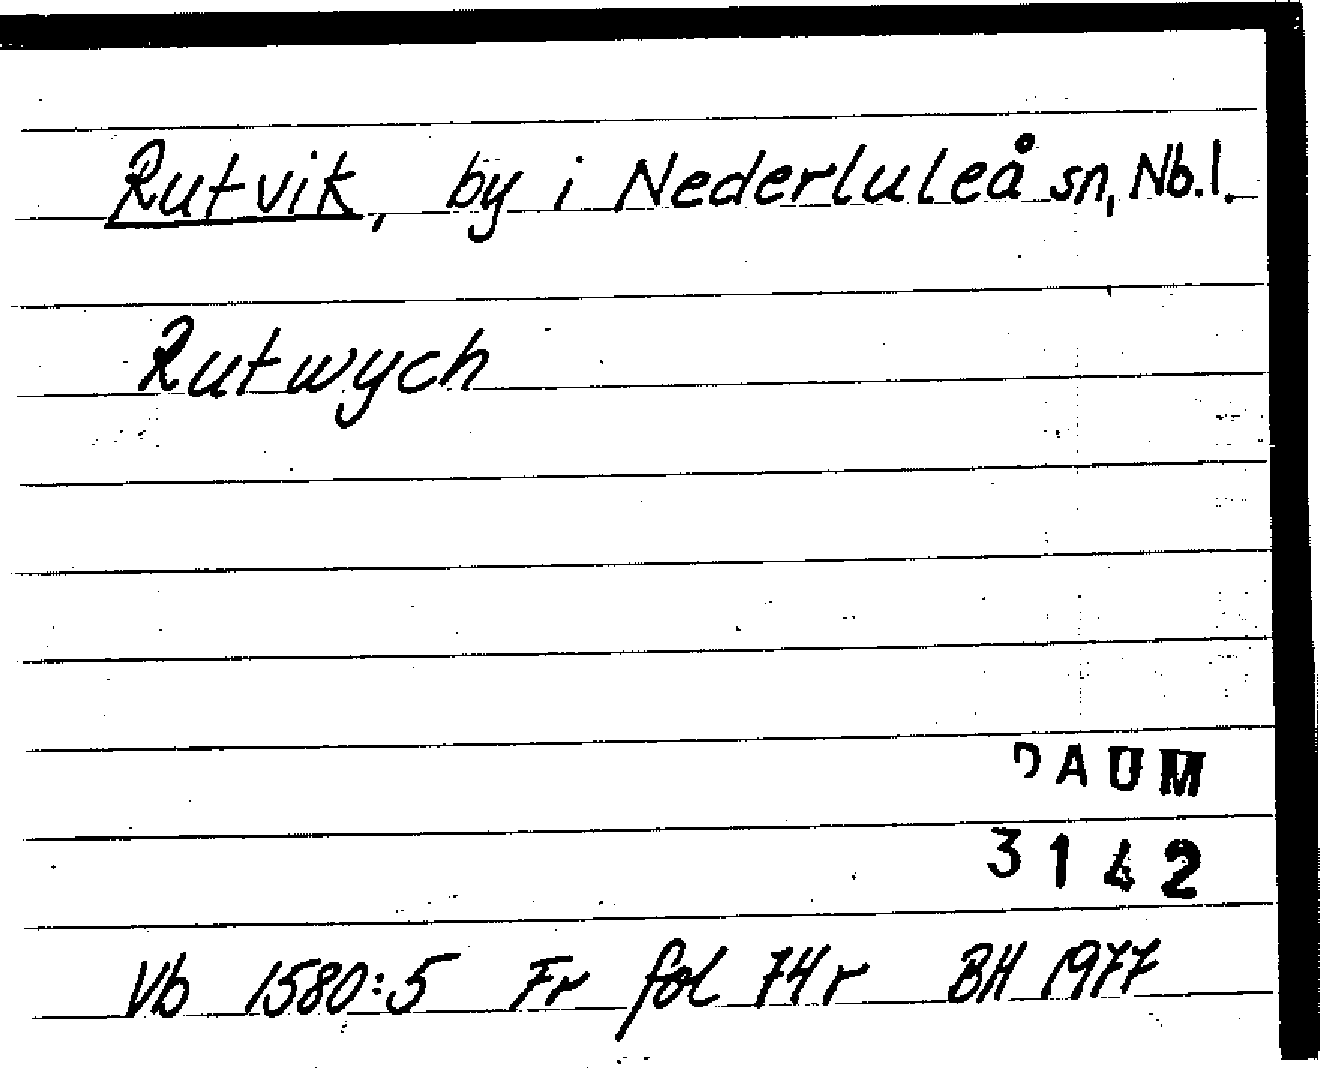 Rutvik, by i Nederluleå sn, Nb.l.
Rutwych
DAUM
3142
Vb 1580:5 Fr fol 74r BH 1977